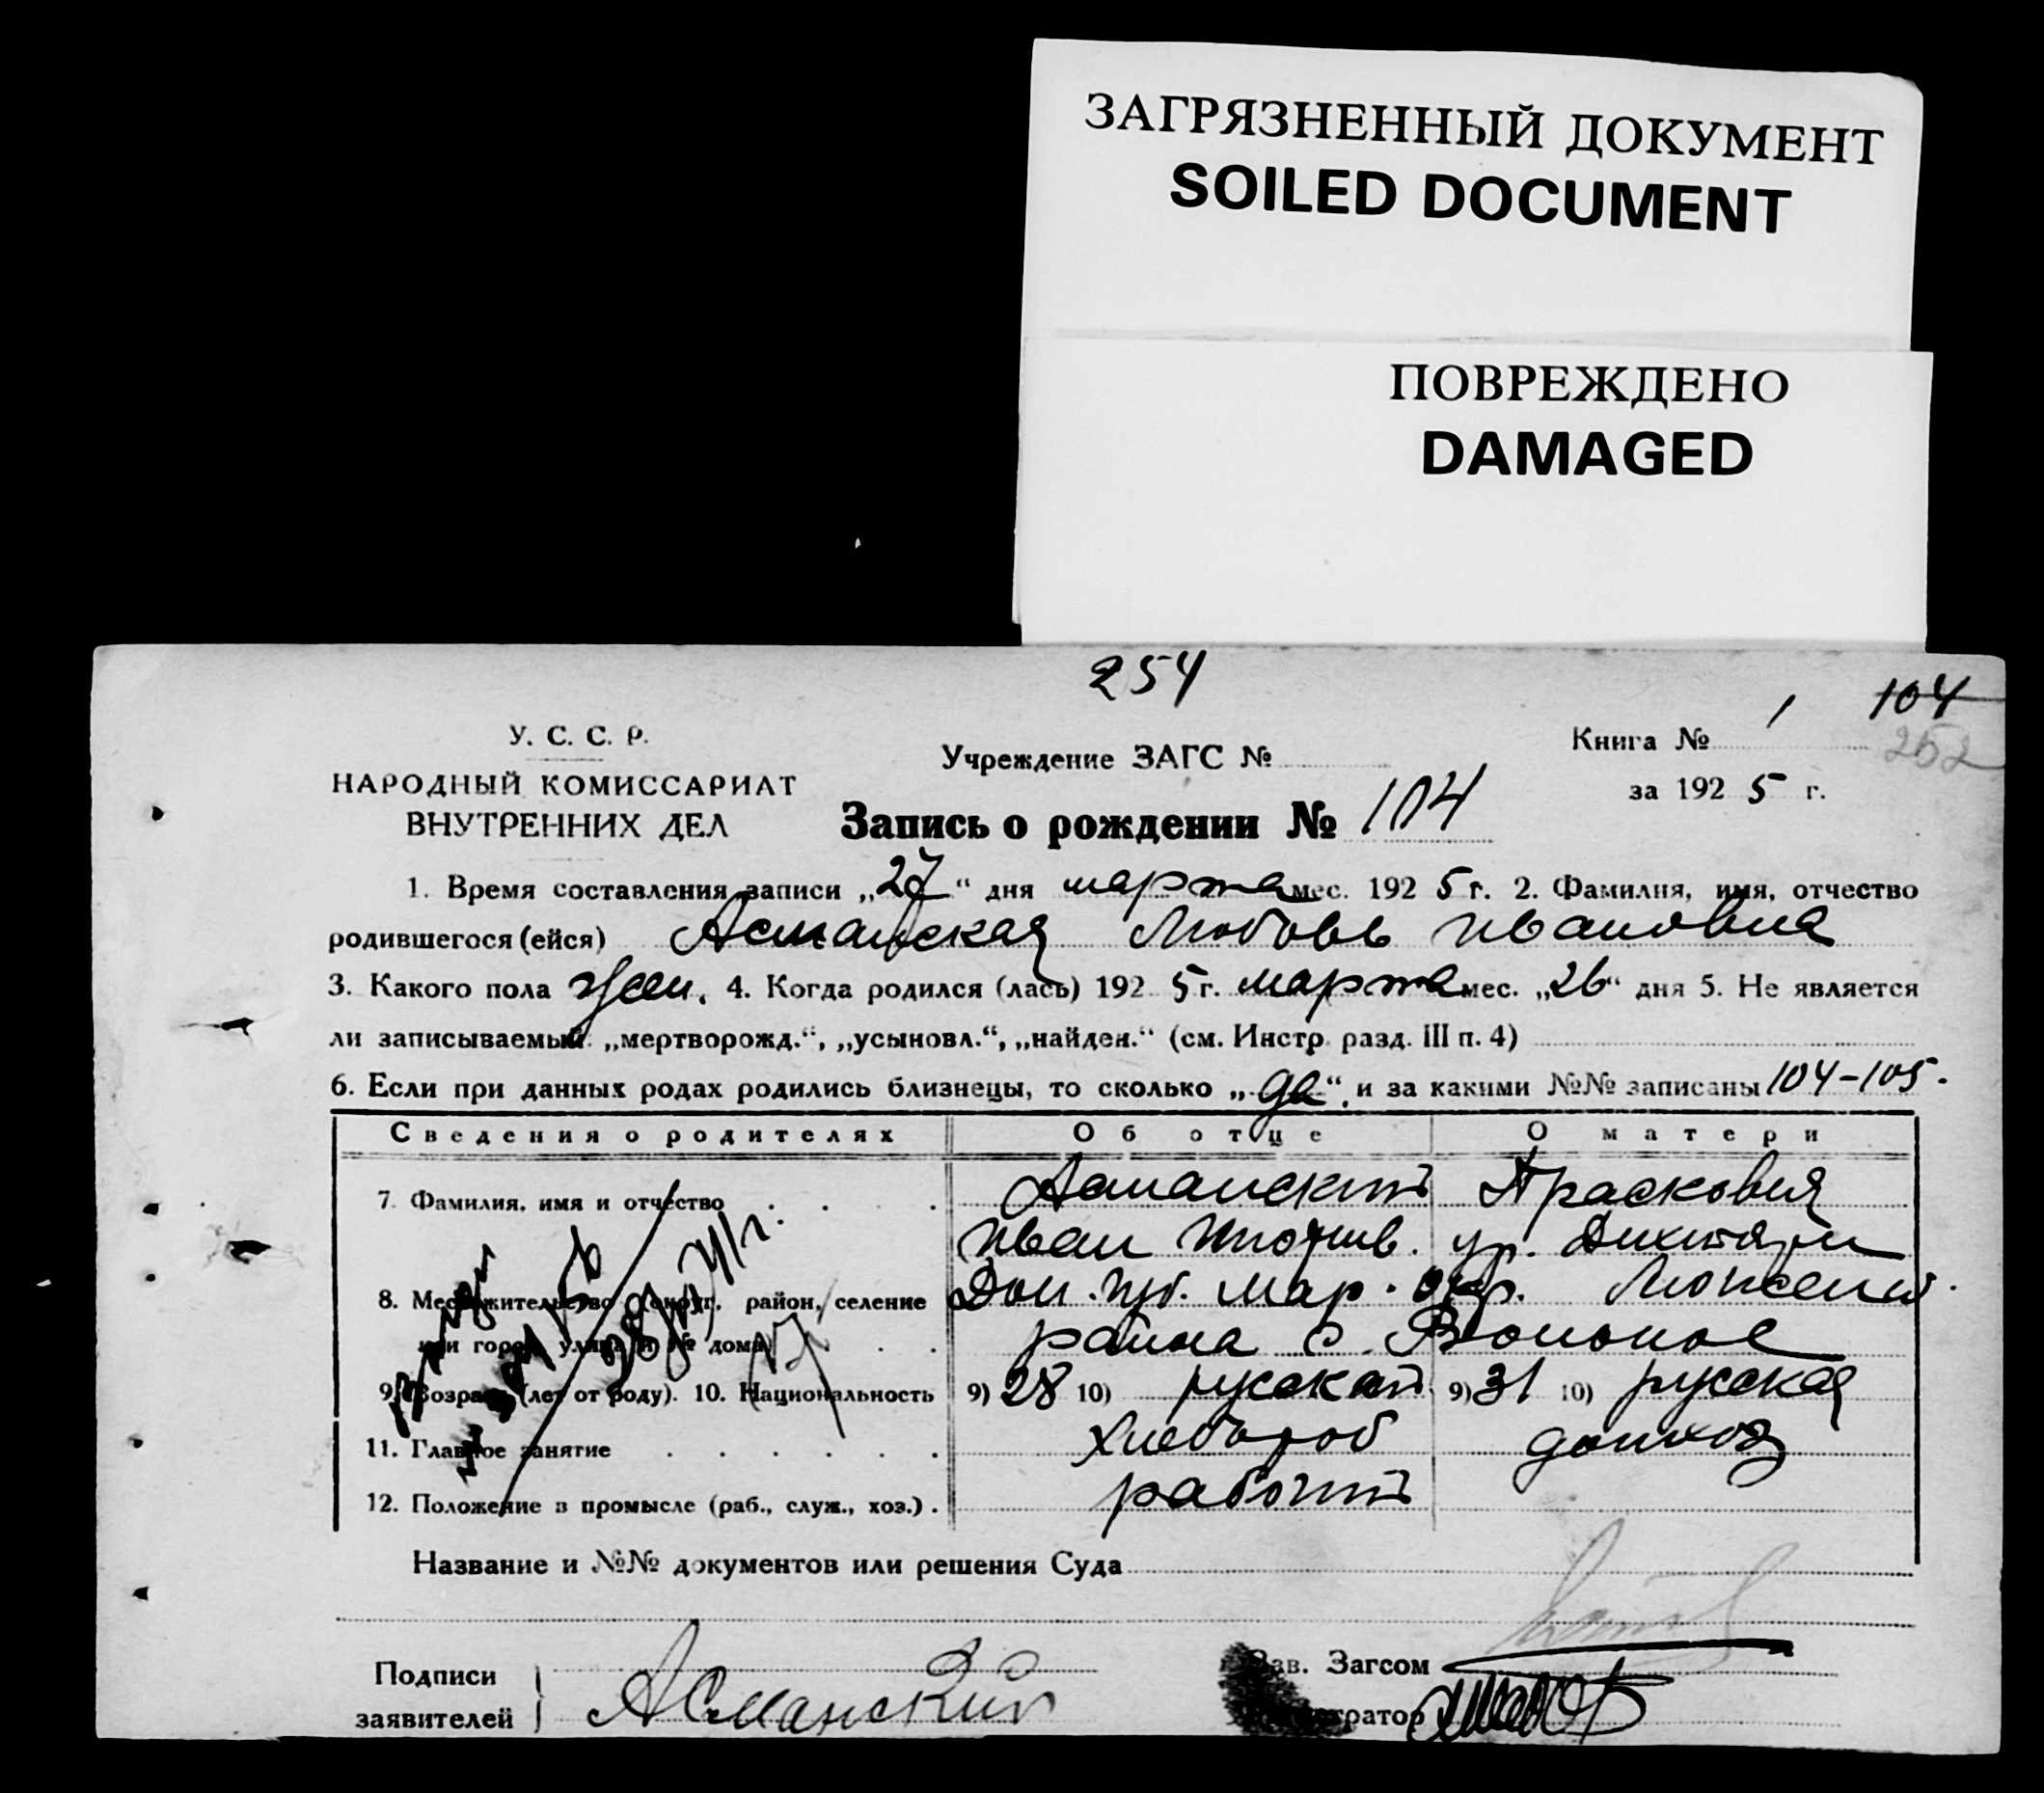 ЗАГРЯЗНЕННЫЙ ДОКУМЕНТ
SOILED DOCUMENT
ПОВРЕЖДЕНО
DAMAGED
254
104
252
У. С. С. Р.
НАРОДНЫЙ КОМИССАРИАТ
ВНУТРЕННИХ ДЕЛ
Учреждение ЗАГС №
Книга № 1
за 192 5 г.
Запись о рождении № 104
1. Время составления записи „27“ дня марта мес. 192 5 г. 2. Фамилия, имя, отчество
родившегося (ейся) Асманская Любовь Ивановна
3. Какого пола жен. 4. Когда родился (лась) 192 5 г. марта мес. „26“ дня 5. Не является
ли записываемый „мертворожд.“, „усыновл.“, „найден.“ (см. Инстр. разд. III п. 4)
6. Если при данных родах родились близнецы, то сколько „да“ и за какими №№ записаны 104-105.
Сведения о родителях Об отце О матери
7. Фамилия, имя и отчество Асманский Прасковия
Иван ур.
8. Местожительство (округ, район, селение Дон. губ. Мар. окр.
или город, улица и № дома) района с.
9. Возраст (лет от роду). 10. Национальность 9) 28 10) русский 9) 31 10) русская
11. Главное занятие Хлебороб домхоз
12. Положение в промысле (раб., служ., хоз.) рабочий
Название и №№ документов или решения Суда
Подписи
заявителей Асманский
Зав. Загсом